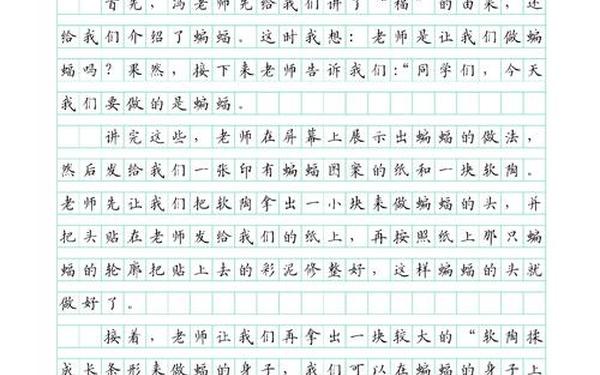 首先，冯老师先给我们讲了“福”的由来，还
给我们介绍了蝙蝠。这时我想：老师是让我们做蝙
蝠吗？果然，接下来老师告诉我们：“同学们，今天
我们要做的是蝙蝠。
讲完这些，老师在屏幕上展示出蝙蝠的做法，
然后发给我们一张印有蝙蝠图案的纸和一块软陶。
老师先让我们把软陶拿出一小块来做蝙蝠的头，并
把头贴在老师发给我们的纸上，再按照纸上那只蝙
蝠的轮廓把贴上去的彩泥修整好，这样蝙蝠的头就
做好了。
接着，老师让我们再拿出一块较大的“软陶揉
成长条形来做蝙蝠的身子，我们可以在蝙蝠的身子上